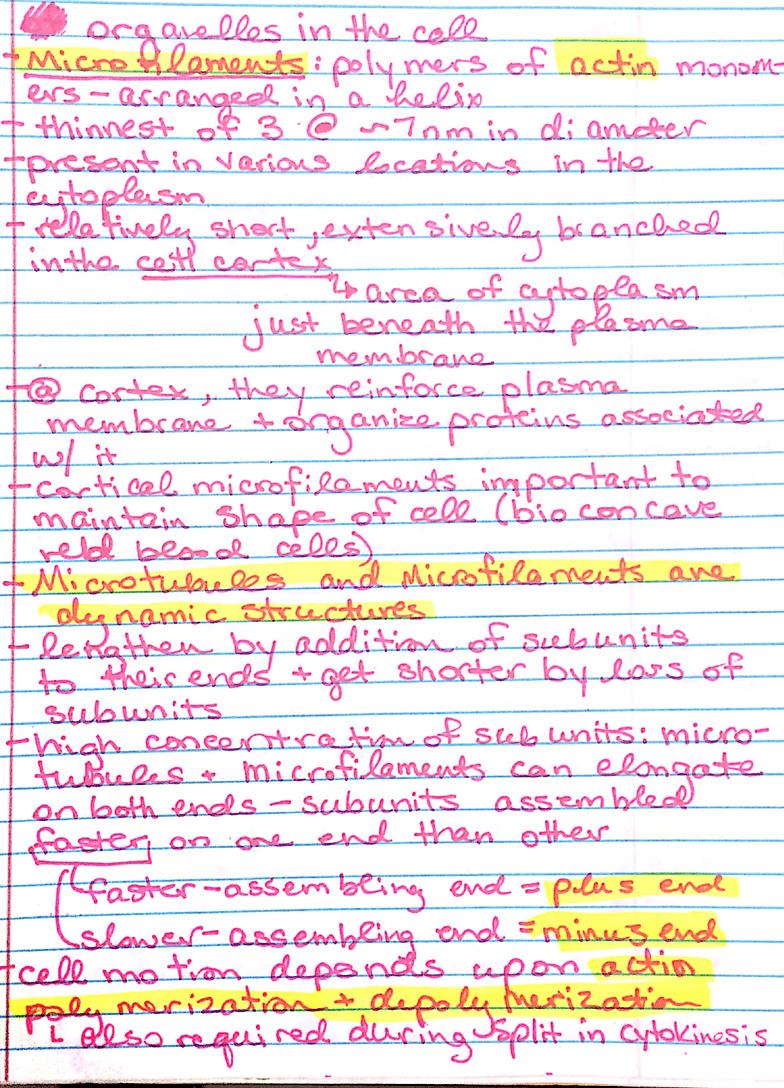 organelles in the cell
- Microfilaments: polymers of actin monom-
ers - arranged in a helix
- thinnest of 3 @ ~7nm in diameter
- present in various locations in the
cytoplasm
- relatively short, extensively branched
in the cell cortex
↳ area of cytoplasm
just beneath the plasma
membrane
- @ cortex, they reinforce plasma
membrane + organize proteins associated
w/ it
- cortical microfilaments important to
maintain shape of cell (bioconcave
reld blood cells)
- Microtubules and Microfilaments are
dynamic structures
- lengthen by addition of subunits
to their ends + get shorter by loss of
subunits
- high concentration of subunits: micro-
tubules + microfilaments can elongate
on both ends - subunits assembled
faster on one end than other
faster-assembling end = plus end
slower-assembling end = minus end
- cell motion depends upon actin
polymerization + depolymerization
↳ also required during split in cytokinesis